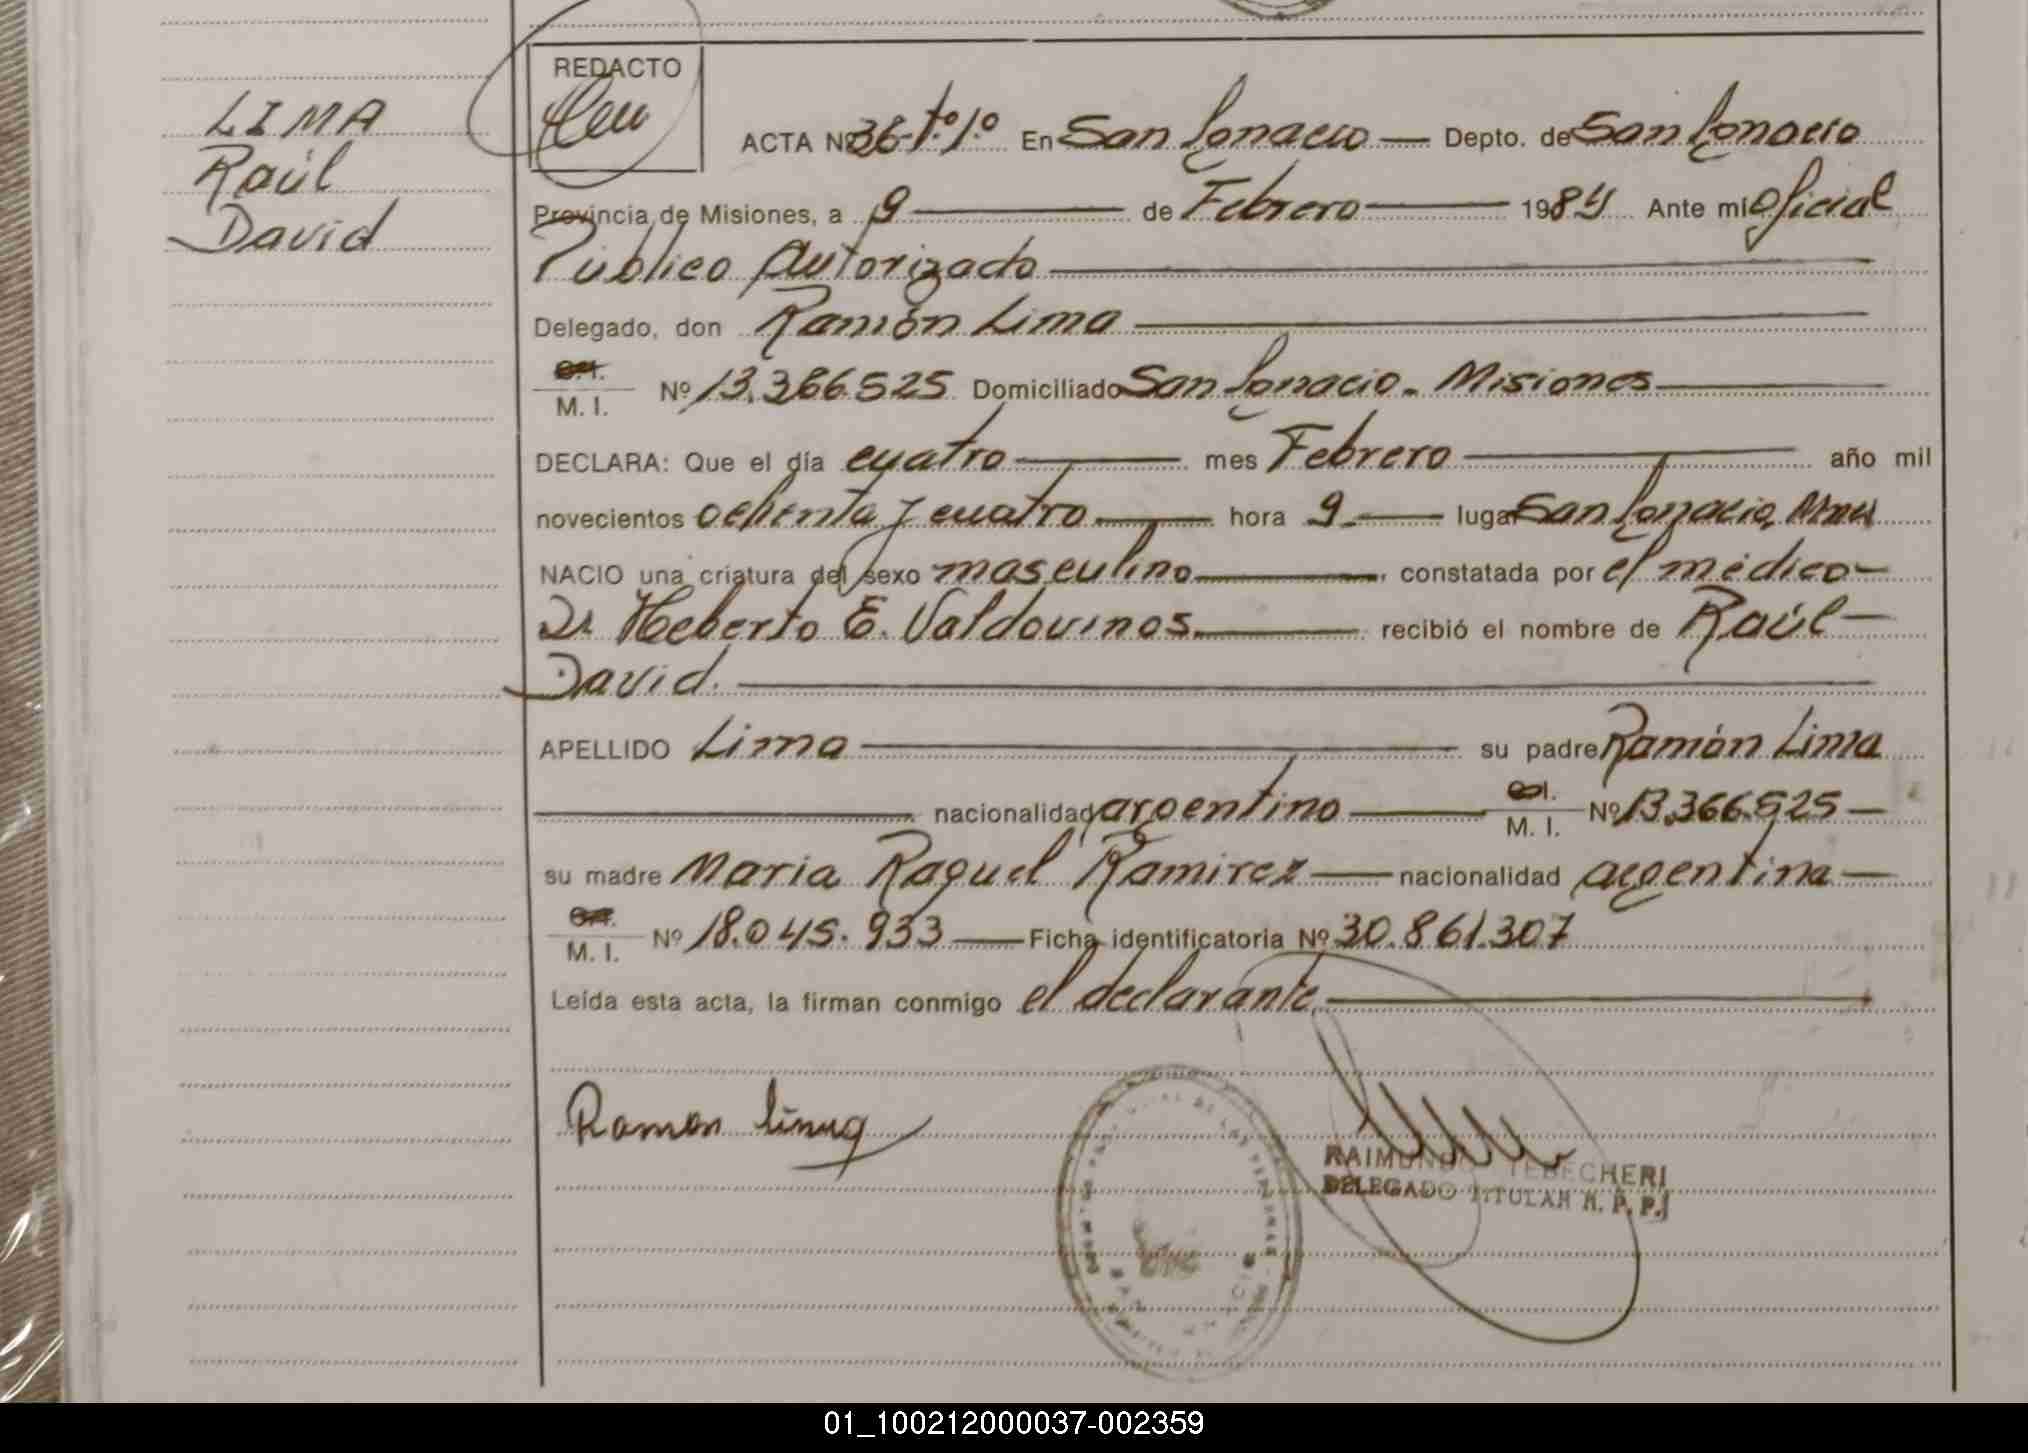 LIMA
Raúl
David
REDACTO
ACTA Nº 36-Tº1º En San Ignacio — Depto. de San Ignacio
Provincia de Misiones, a 9 — de Febrero — 1984 Ante mi Oficial
Público Autorizado —
Delegado, don Ramón Lima —
C.I.
M. I. Nº 13.366.525 Domiciliado San Ignacio - Misiones —
DECLARA: Que el día cuatro — mes Febrero — año mil
novecientos ochenta y cuatro — hora 9.— lugar San Ignacio, Mnes
NACIO una criatura del sexo masculino —, constatada por el médico —
Dr Heberto E. Valdovinos. — recibió el nombre de Raúl —
David. —
APELLIDO Lima — su padre Ramón Lima
— nacionalidad argentino — C.I.
M. I. Nº 13.366.525 —
su madre Maria Raquel Ramirez — nacionalidad argentina —
C.I.
M. I. Nº 18.045.933 — Ficha identificatoria Nº 30.861.307
Leída esta acta, la firman conmigo el declarante. —
Ramon Lima
RAIMUNDO TEBECHERI
DELEGADO TITULAR R. P. P.
DE LAS PERSONAS
SAN IGNACIO
01_100212000037-002359